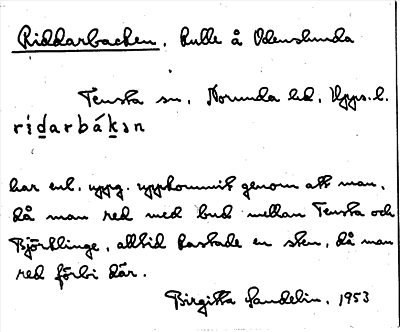 Riddarbacken, kulle å Odenslunda
Tensta sn, Norunda hd, Upps. l.
ridarbákən
har enl. uppg. uppkommit genom att man,
då man red med bud mellan Tensta och
Björklinge, alltid kastade en sten, då man
red förbi där.
Birgitta Sandelin, 1953